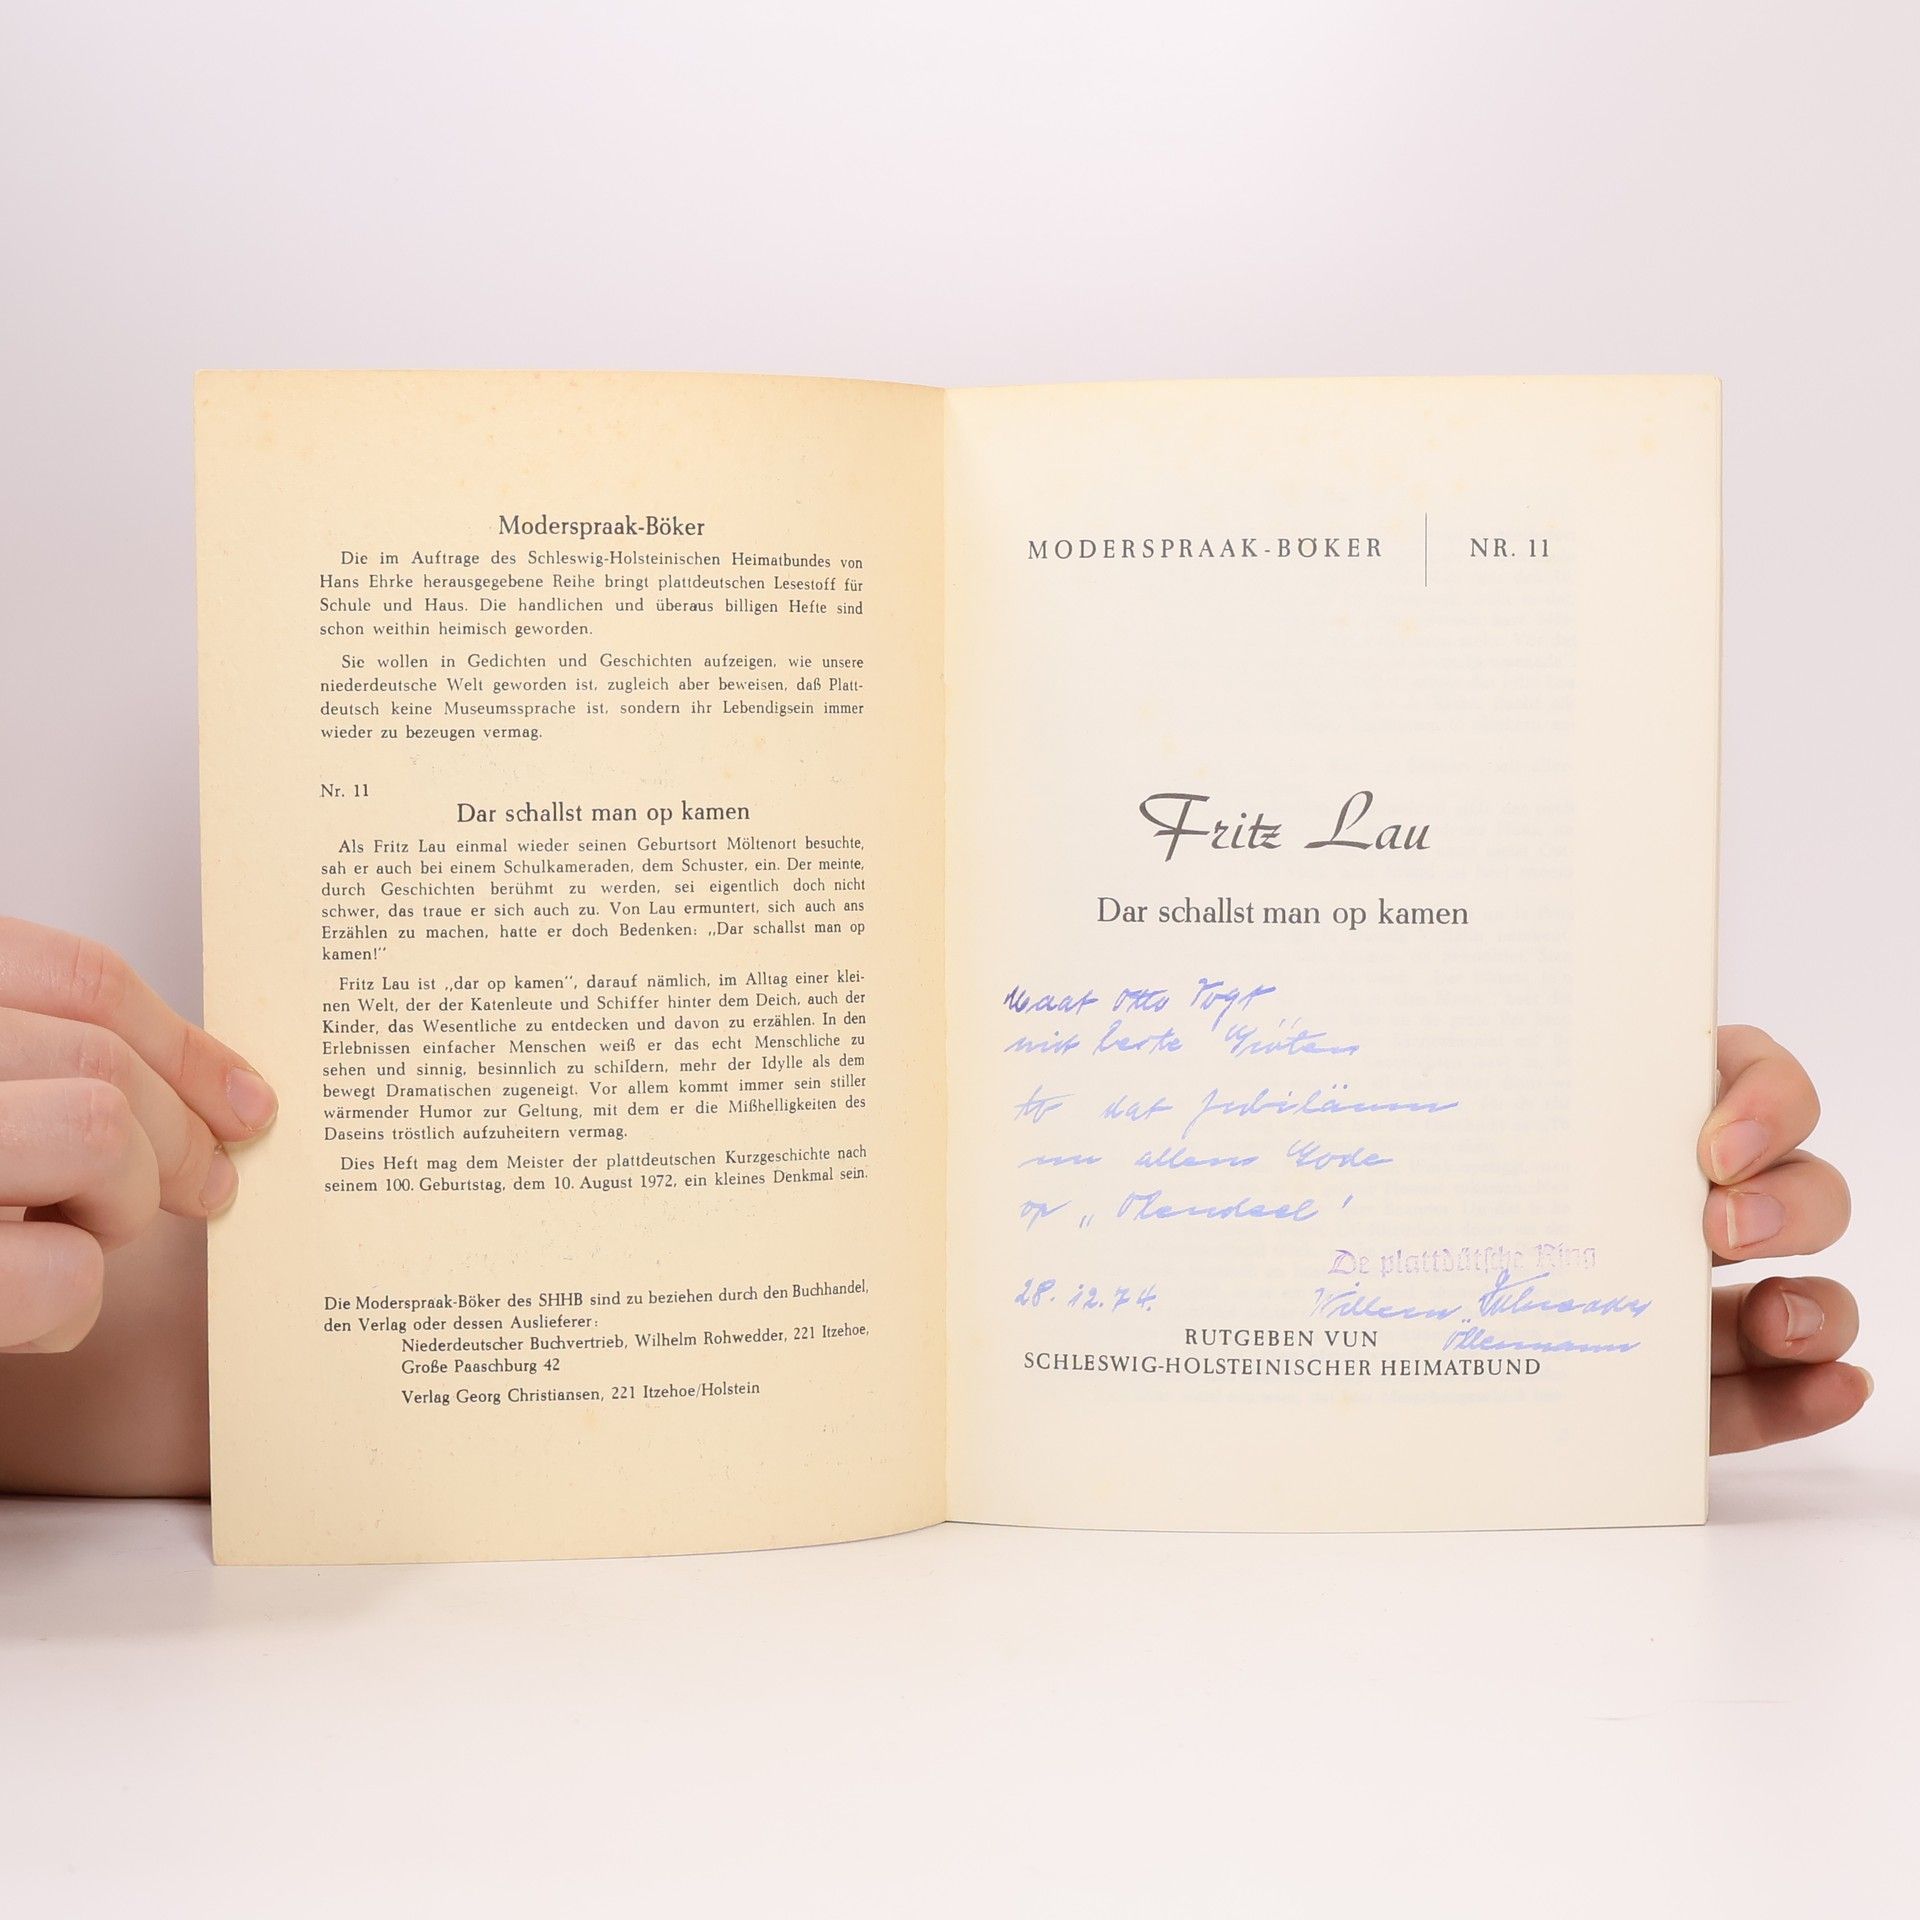 Moderspraak-Böker
Die im Auftrage des Schleswig-Holsteinischen Heimatbundes von
Hans Ehrke herausgegebene Reihe bringt plattdeutschen Lesestoff für
Schule und Haus. Die handlichen und überaus billigen Hefte sind
schon weithin heimisch geworden.
Sie wollen in Gedichten und Geschichten aufzeigen, wie unsere
niederdeutsche Welt geworden ist, zugleich aber beweisen, daß Platt-
deutsch keine Museumssprache ist, sondern ihr Lebendigsein immer
wieder zu bezeugen vermag.
Nr. 11
Dar schallst man op kamen
Als Fritz Lau einmal wieder seinen Geburtsort Möltenort besuchte,
sah er auch bei einem Schulkameraden, dem Schuster, ein. Der meinte,
durch Geschichten berühmt zu werden, sei eigentlich doch nicht
schwer, das traue er sich auch zu. Von Lau ermuntert, sich auch ans
Erzählen zu machen, hatte er doch Bedenken: „Dar schallst man op
kamen!“
Fritz Lau ist „dar op kamen“, darauf nämlich, im Alltag einer klei-
nen Welt, der der Katenleute und Schiffer hinter dem Deich, auch der
Kinder, das Wesentliche zu entdecken und davon zu erzählen. In den
Erlebnissen einfacher Menschen weiß er das echt Menschliche zu
sehen und sinnig, besinnlich zu schildern, mehr der Idylle als dem
bewegt Dramatischen zugeneigt. Vor allem kommt immer sein stiller
wärmender Humor zur Geltung, mit dem er die Mißhelligkeiten des
Daseins tröstlich aufzuheitern vermag.
Dies Heft mag dem Meister der plattdeutschen Kurzgeschichte nach
seinem 100. Geburtstag, dem 10. August 1972, ein kleines Denkmal sein.
Die Moderspraak-Böker des SHHB sind zu beziehen durch den Buchhandel,
den Verlag oder dessen Auslieferer:
Niederdeutscher Buchvertrieb, Wilhelm Rohwedder, 221 Itzehoe,
Große Paaschburg 42
Verlag Georg Christiansen, 221 Itzehoe/Holstein
MODERSPRAAK-BÖKER NR. 11
Fritz Lau
Dar schallst man op kamen
Maat Otto Vogt
mit beste Gröten
to dat Jubiläum
un allens Gode
op
De plattdütsche Ring
28. 12. 74.
Willem
Öllermann
RUTGEBEN VUN
SCHLESWIG-HOLSTEINISCHER HEIMATBUND